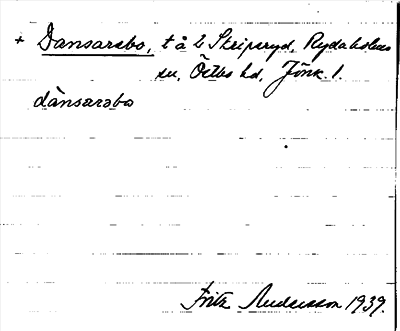 + Dansarebo, t å 2 Skripsryd, Rydaholms
sn, Östbo hd, Jönk. l.
dànsarəbo
Fritz Andersson 1939.